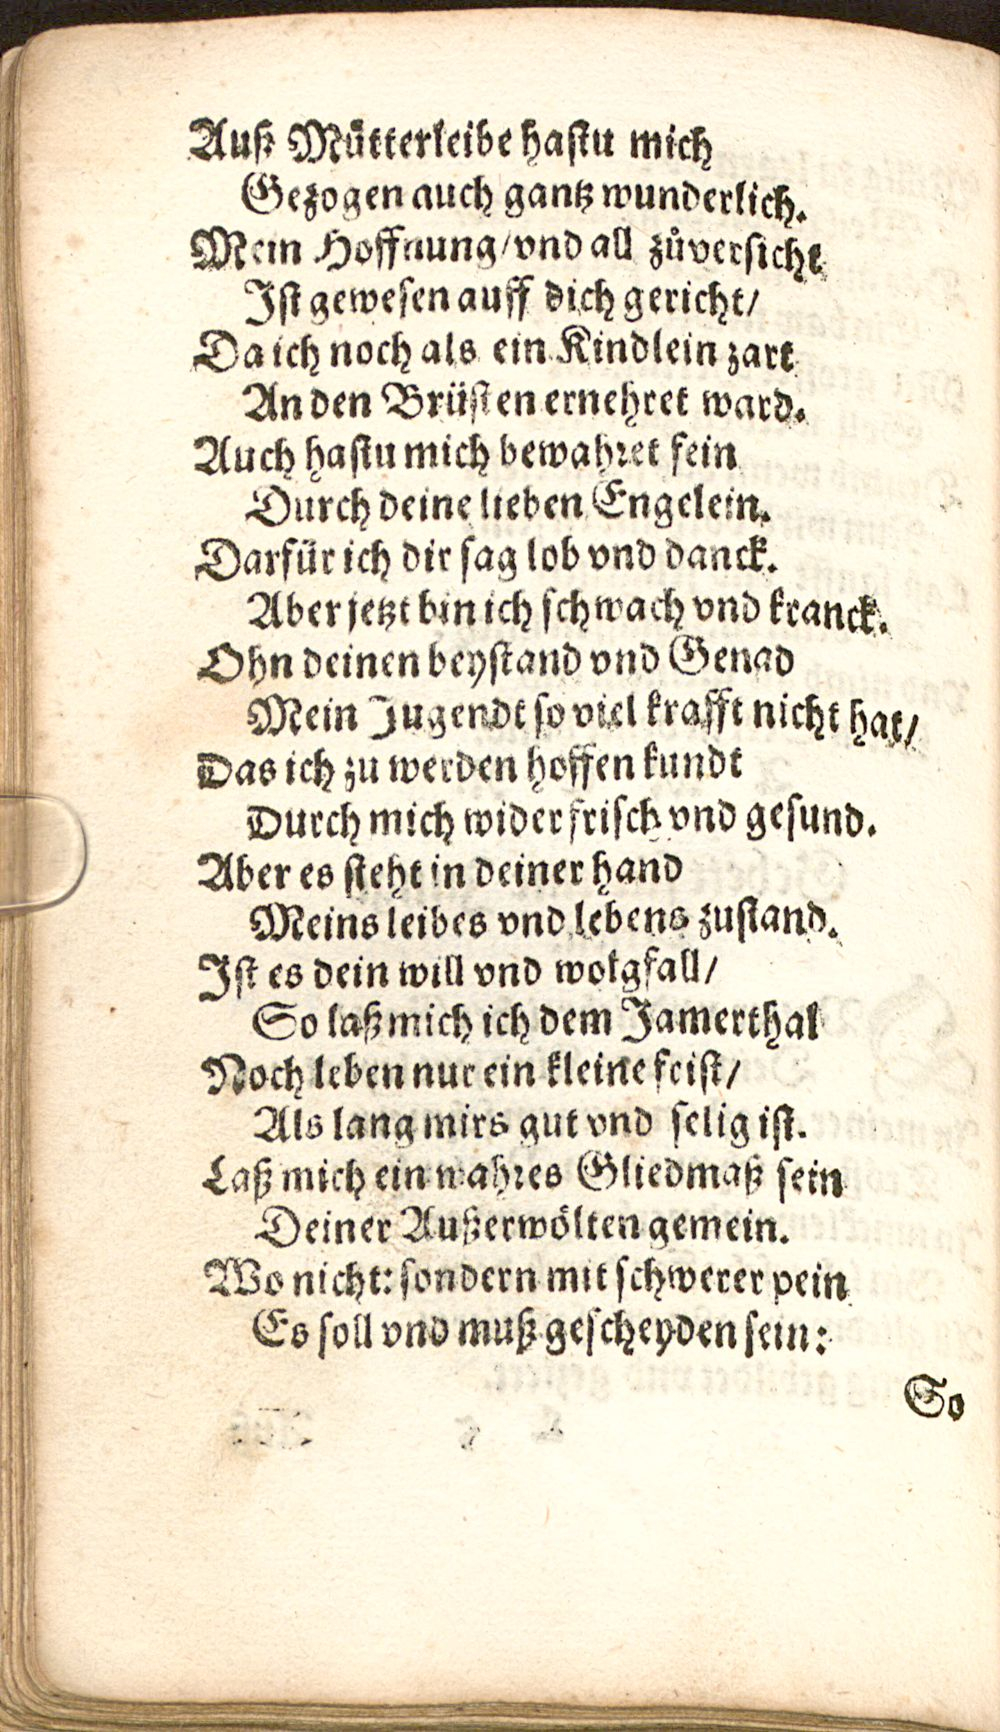 Auß Můtterleibe hastu mich
Gezogen auch gantz wunderlich.
Mein Hoffnung/vnd all zůversicht
Ist gewesen auff dich gericht/
Da ich noch als ein Kindlein zart
An den Brüsten ernehret ward.
Auch hastu mich bewahret fein
Durch deine lieben Engelein.
Darfür ich dir sag lob vnd danck.
Aber jetzt bin ich schwach vnd kranck.
Ohn deinen beystand vnd Genad
Mein Jugendt so viel krafft nicht hat/
Das ich zu werden hoffen kundt
Durch mich wider frisch vnd gesund.
Aber es steht in deiner hand
Meins leibes vnd lebens zustand.
Ist es dein will vnd wolgfall/
So laß mich ich dem Jamerthal
Noch leben nur ein kleine frist/
Als lang mirs gut vnd selig ist.
Laß mich ein wahres Gliedmaß sein
Deiner Außerwölten gemein.
Wo nicht: sondern mit schwerer pein
Es soll vnd muß gescheyden sein:
So